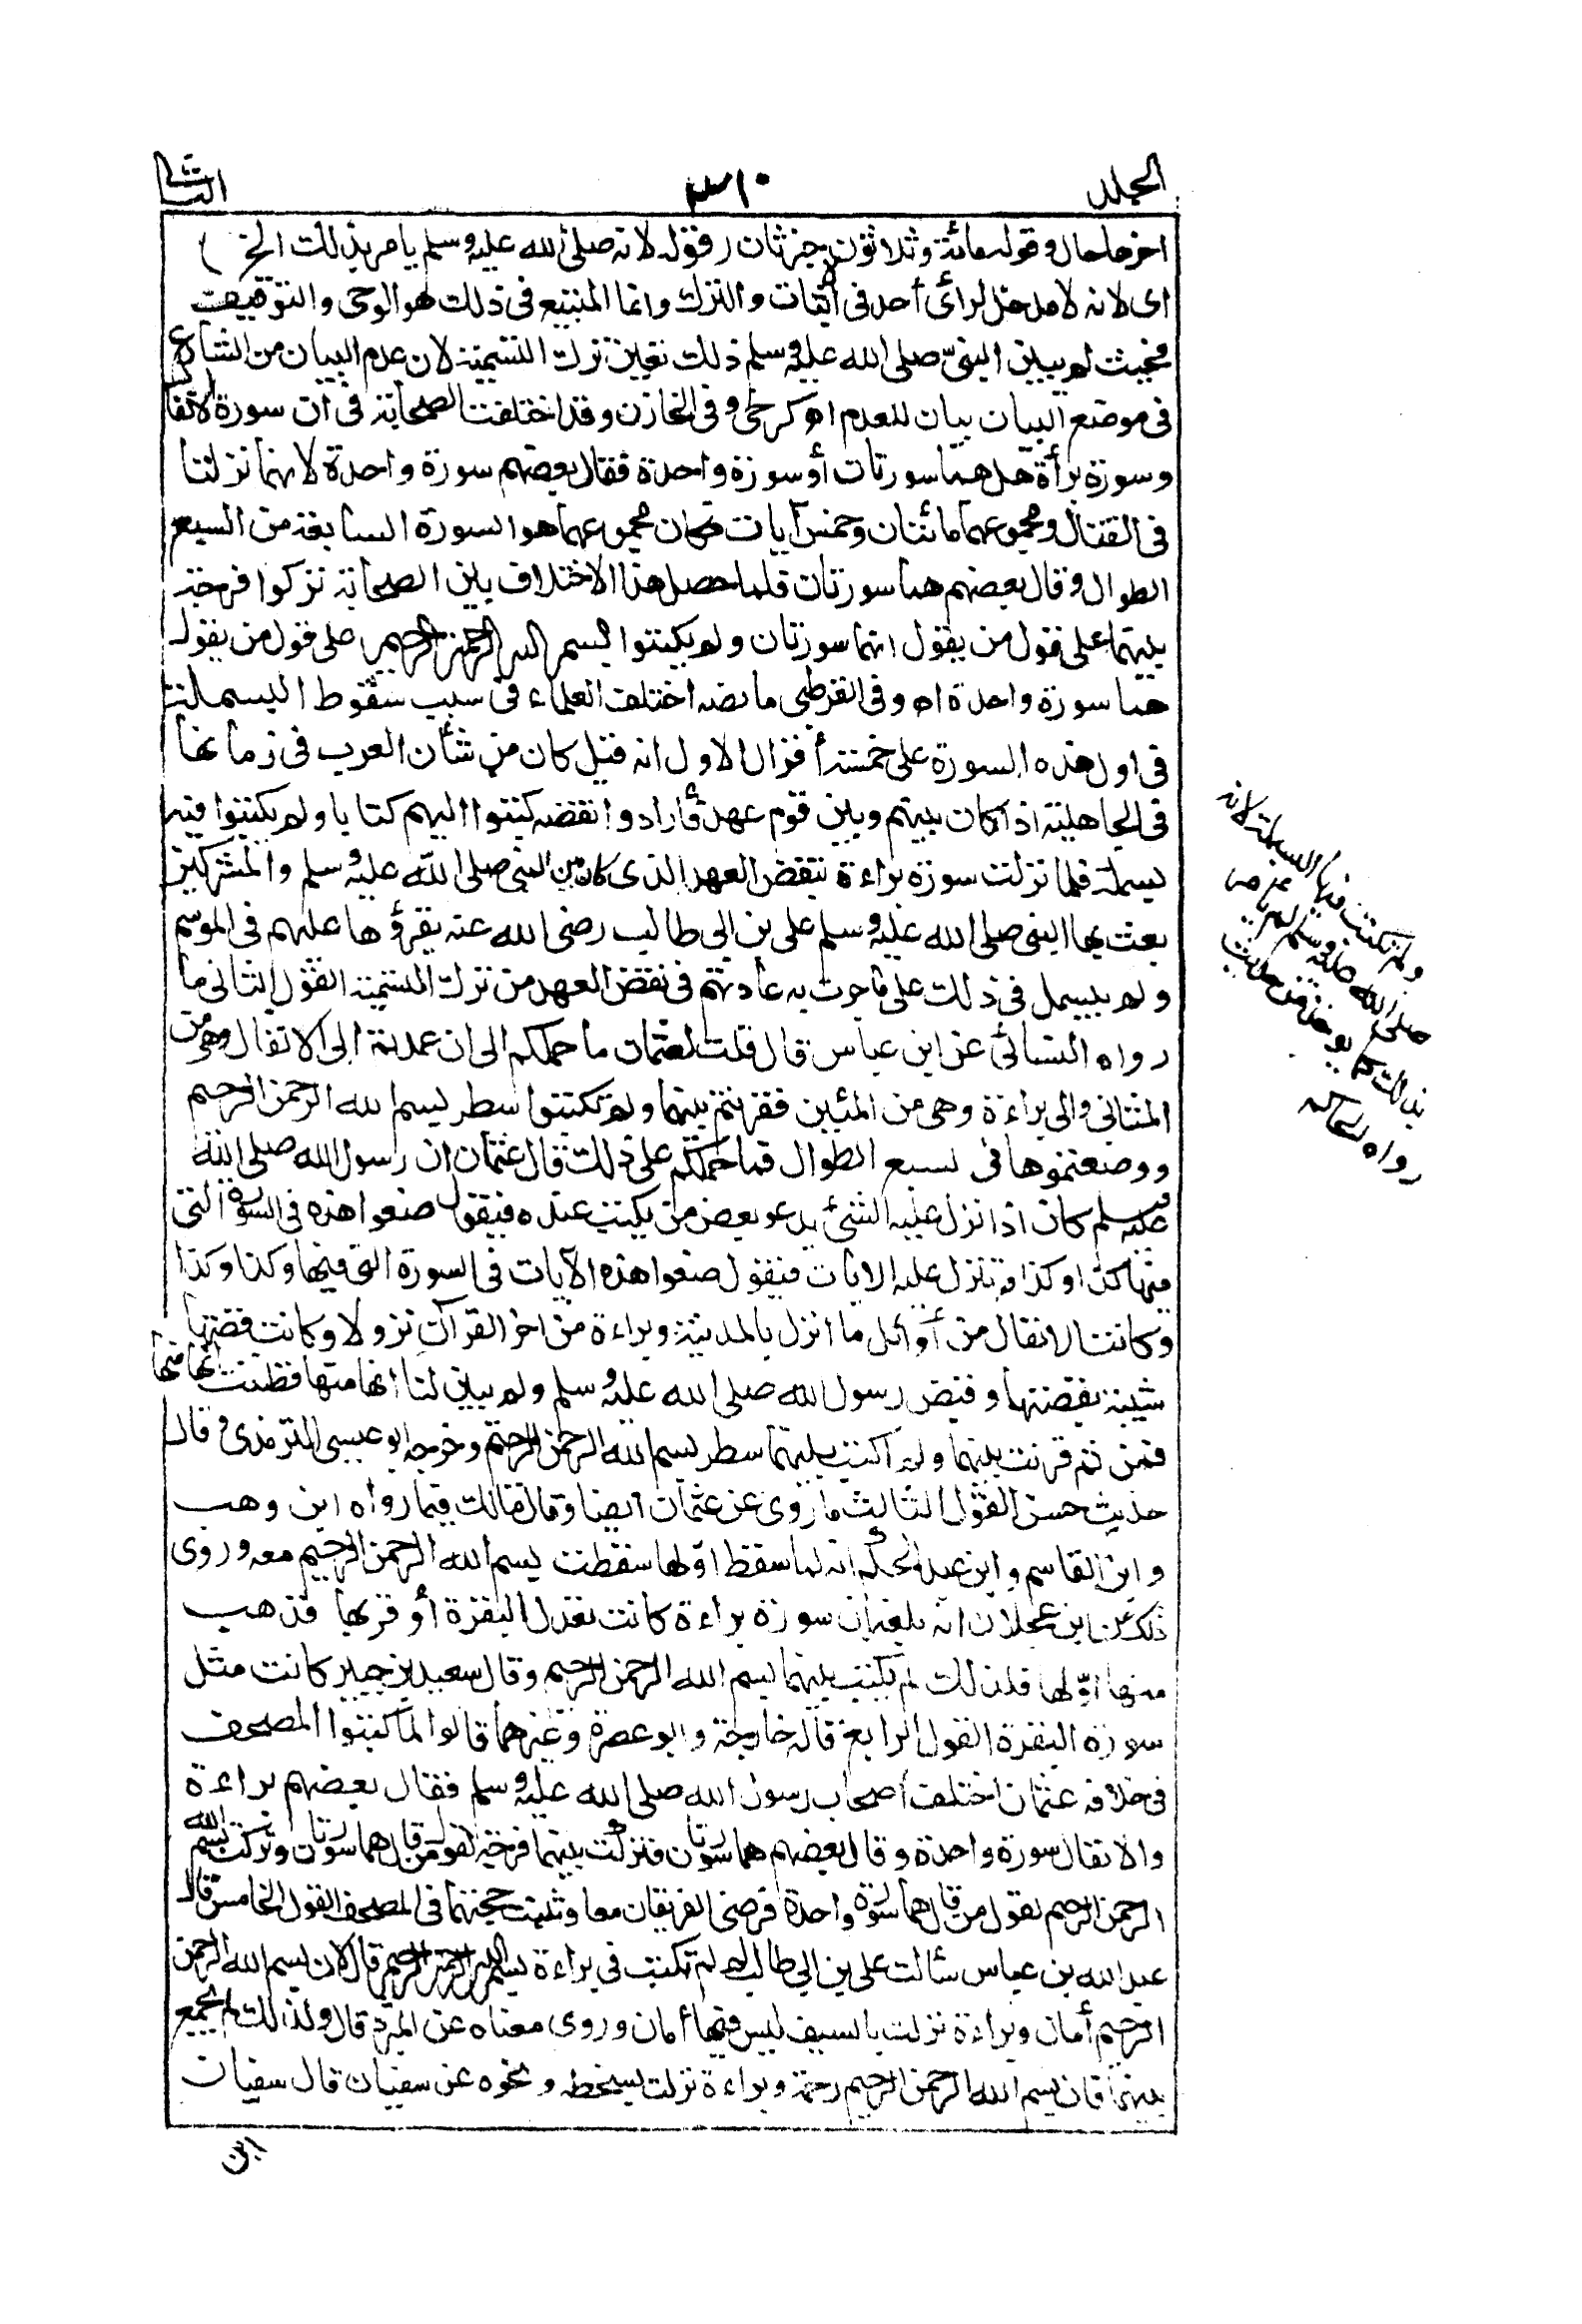 المجلد
٣١٠
الثانى
اخرها حال وقوله مائة وثلاثون خبر ثان (قوله لانه صلى الله عليه وسلم لم يأمر بذلك الخ)
اى لانه لا مدخل لرأى أحد فى الاثبات والترك وانما المتبع فى ذلك هو الوحى والتوقيف
فحيث لم يبين النبىّ صلى الله عليه وسلم ذلك تعين ترك التسمية لان عدم البيان من الشارع
فى موضع البيان بيان للعدم اه كرخى وفى الخازن وقد اختلفت الصحابة فى ان سورة الانفال
وسورة برأة هل هما سورتان أو سورة واحدة فقال بعضهم سورة واحدة لانهما نزلتا
فى القتال ومجموعهما مائتان وخمس آيات فكان مجموعهما هو السورة السابعة من السبع
الطوال وقال بعضهم هما سورتان فلما حصل هذا الاختلاف بين الصحابة تركوا فرجة
بينهما على قول من يقول انهما سورتان ولم يكتبوا بسم الله الرحمن الرحيم على قول من يقول
هما سورة واحدة اه وفى القرطبى ما نصه اختلف العلماء فى سبب سقوط البسملة
فى اول هذه السورة على خمسة أقوال الاول انه قيل كان من شأن العرب فى زمانها
فى الجاهلية اذا كان بينهم وبين قوم عهد فأرادوا نقضه كتبوا اليهم كتابا ولم يكتبوا فيه
بسملة فلما نزلت سورة براءة بنقض العهد الذى كان بين النبى صلى الله عليه وسلم والمشركين
بعث بها النبى صلى الله عليه وسلم على بن ابى طالب رضى الله عنه يقرؤها عليهم فى الموسم
ولم يبسمل فى ذلك على ما جرت به عادتهم فى نقض العهد من ترك التسمية القول الثانى ما
رواه النسائى عن ابن عباس قال قلت لعثمان ما حملكم الى ان عمدتم الى الانفال وهى من
المثانى والى براءة وهى من المئين فقرنتم بينهما ولم تكتبوا سطر بسم الله الرحمن الرحيم
ووضعتموها فى السبع الطوال فما حملكم على ذلك قال عثمان ان رسول الله صلى الله
عليه وسلم كان اذا نزل عليه الشئ يدعو بعض من يكتب عنده فيقول ضعوا هذه فى السورة التى
فيها كذا وكذا وتنزل عليه الايات فيقول ضعوا هذه الآيات فى السورة التى فيها وكذا وكذا
وكانت الانفال من أوائل ما انزل بالمدينة وبراءة من اخر القرآن نزولا وكانت قصتها
شبيهة بقصتها وقبض رسول الله صلى الله عليه وسلم ولم يبين لنا انها منها فظننت انها منها
فمن ثم قرنت بينهما ولم اكتب بينهما سطر بسم الله الرحمن الرحيم وخرجه ابو عيسى الترمذى وقال
حديث حسن القول الثالث ما روى عن عثمان ايضا وقال مالك فيما رواه ابن وهب
وابن القاسم وابن عبد الحكم انه لما سقط اوّلها سقطت بسم الله الرحمن الرحيم معه وروى
ذلك عن ابن عجلان انه بلغه ان سورة براءة كانت تعدل البقرة أو قربها فذهب
منها اوّلها فلذلك لم يكتب بينهما بسم الله الرحمن الرحيم وقال سعيد بن جبير كانت مثل
سورة البقرة القول الرابع قاله خارجة وابو عصمة وغيرهما قالوا لما كتبوا المصحف
فى خلافة عثمان اختلف أصحاب رسول الله صلى الله عليه وسلم فقال بعضهم براءة
والانفال سورة واحدة وقال بعضهم هما سورتان فتركت بينهما فرجة لقول من قال هما سورتان وتركت بسم الله
الرحمن الرحيم لقول من قال هما سورة واحدة فرضى الفريقان معا وثبتت حجتهما فى المصحف القول الخامس قال
عبد الله بن عباس سألت على بن ابى طالب لم لم تكتب فى براءة بسم الله الرحمن الرحيم قال لان بسم الله الرحمن
الرحيم أمان وبراءة نزلت بالسيف ليس فيها أمان وروى معناه عن المبرد قال ولذلك لم يجمع
بينهما فان بسم الله الرحمن الرحيم رحمة وبراءة نزلت بسخطه ونحوه عن سفيان قال سفيان
ابن
ولم تكتب فيها البسملة لانه
صلى الله عليه وسلم لم يأمر
بذلك كما يؤخذ من حديث
رواه الحاكم